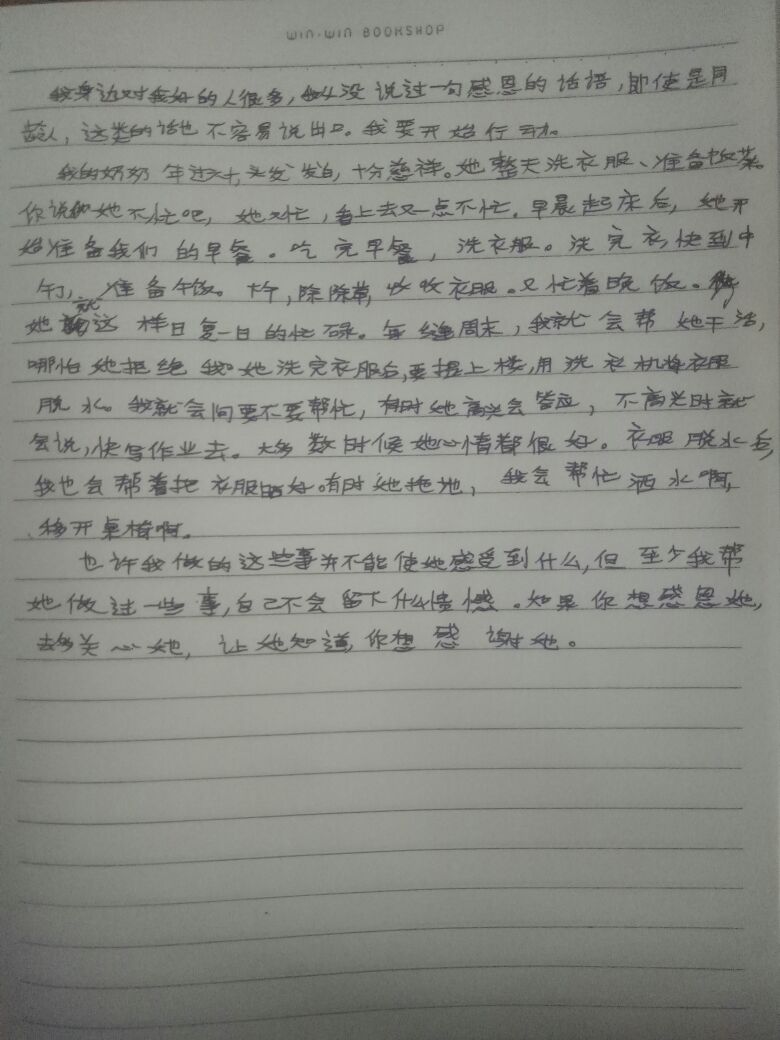 WIN·WIN BOOKSHOP
我身边对我好的人很多,我从没说过一句感恩的话语,即使是同
龄人,这类的话也不容易说出口。我要开始行动。
我的奶奶年过六十,头发发白,十分慈祥。她整天洗衣服、准备饭菜。
你说她不忙吧,她又忙,看上去又一点不忙。早晨起床后,她开
始准备我们的早餐。吃完早餐,洗衣服。洗完衣,快到中
午了,准备午饭。下午,除除草,收收衣服。又忙着晚饭。
她就这样日复一日的忙碌。每逢周末,我就会帮她干活,
哪怕她拒绝我。她洗完衣服后,要提上楼,用洗衣机将衣服
脱水。我就会问要不要帮忙,有时她高兴会答应,不高兴时就
会说,快写作业去。大多数时候她心情都很好。衣服脱水后,
我也会帮着把衣服晒好。有时她拖地,我会帮忙洒水啊,
移开桌椅啊。
也许我做的这些事并不能使她感受到什么,但至少我帮
她做过一些事,自己不会留下什么遗憾。如果你想感恩她,
去多关心她,让她知道,你想感谢她。